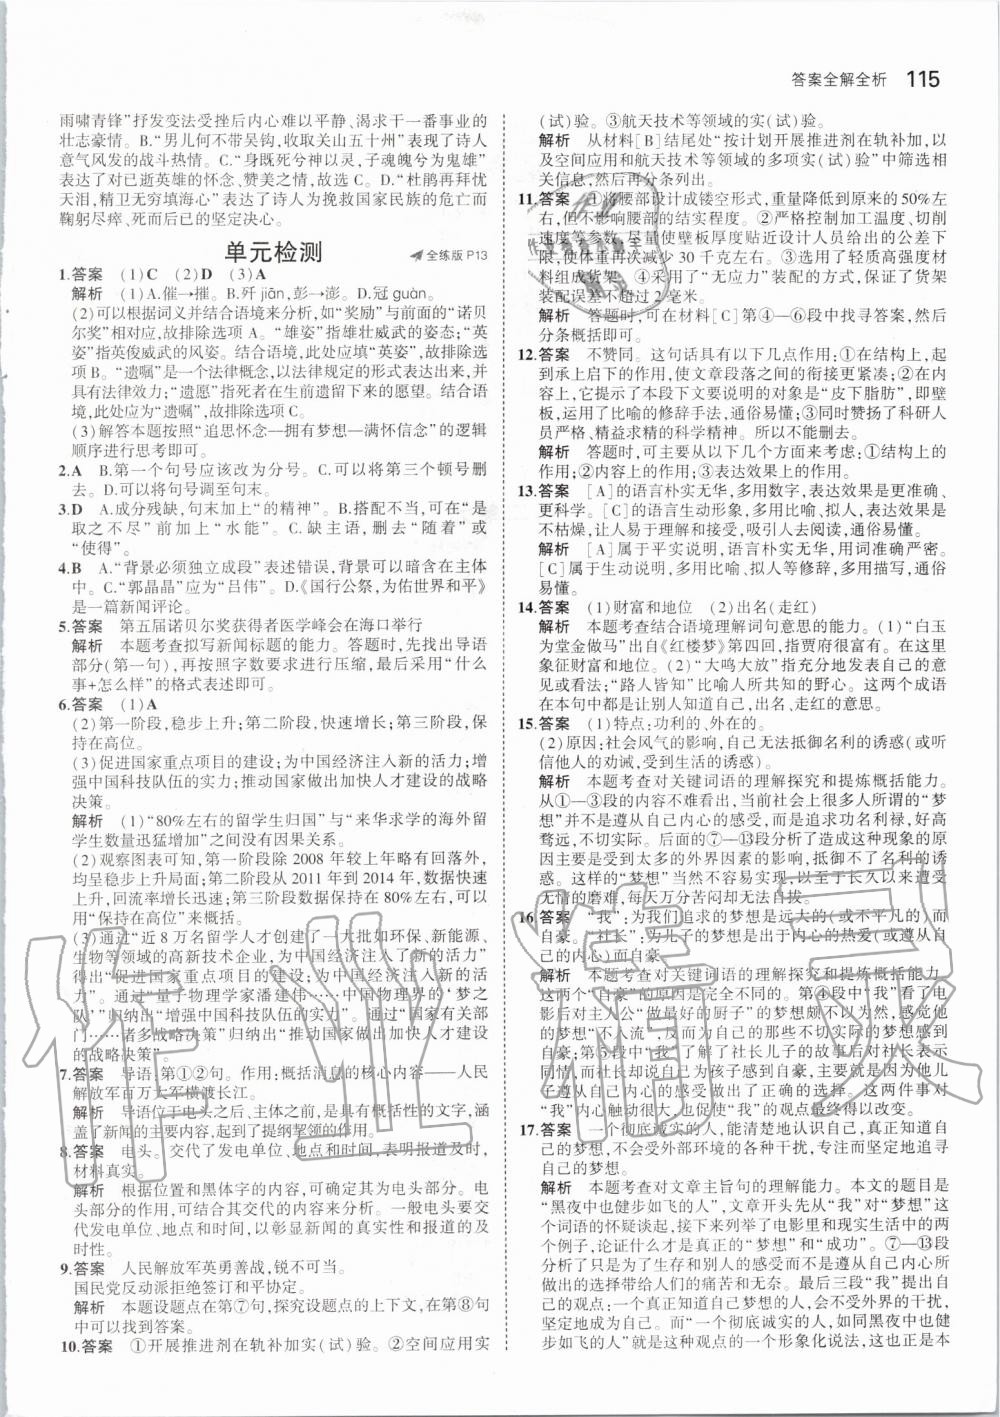 答案全解全析 115
雨啸青锋”抒发变法受挫后内心难以平静、渴求干一番事业的
壮志豪情。B.“男儿何不带吴钩,收取关山五十州”表现了诗人
意气风发的战斗热情。C.“身既死兮神以灵,子魂魄兮为鬼雄”
表达了对已逝英雄的怀念、赞美之情,故选C。D.“杜鹃再拜忧
天泪,精卫无穷填海心”表达了诗人为挽救国家民族的危亡而
鞠躬尽瘁、死而后已的坚定决心。
单元检测 全练版 P13
1.答案 (1)C (2)D (3)A
解析 (1)A.催→摧。B.歼 jiān,彭→澎。D.冠 guàn。
(2)可以根据词义并结合语境来分析,如“奖励”与前面的“诺贝
尔奖”相对应,故排除选项 A。“雄姿”指雄壮威武的姿态;“英
姿”指英俊威武的风姿。结合语境,此处应填“英姿”,故排除选
项B。“遗嘱”是一个法律概念,以法律规定的形式表达出来,并
具有法律效力;“遗愿”指死者在生前遗留下来的愿望。结合语
境,此处应为“遗嘱”,故排除选项C。
(3)解答本题按照“追思怀念—拥有梦想—满怀信念”的逻辑
顺序进行思考即可。
2.A B.第一个句号应该改为分号。C.可以将第三个顿号删
去。D.可以将句号调至句末。
3.D A.成分残缺,句末加上“的精神”。B.搭配不当,在“是
取之不尽”前加上“水能”。C.缺主语,删去“随着”或
“使得”。
4.B A.“背景必须独立成段”表述错误,背景可以暗含在主体
中。C.“郭晶晶”应为“吕伟”。D.《国行公祭,为佑世界和平》
是一篇新闻评论。
5.答案 第五届诺贝尔奖获得者医学峰会在海口举行
解析 本题考查拟写新闻标题的能力。答题时,先找出导语
部分(第一句),再按照字数要求进行压缩,最后采用“什么
事+怎么样”的格式表述即可。
6.答案 (1)A
(2)第一阶段,稳步上升;第二阶段,快速增长;第三阶段,保
持在高位。
(3)促进国家重点项目的建设;为中国经济注入新的活力;增
强中国科技队伍的实力;推动国家做出加快人才建设的战略
决策。
解析 (1)“80%左右的留学生归国”与“来华求学的海外留
学生数量迅猛增加”之间没有因果关系。
(2)观察图表可知,第一阶段除 2008 年较上年略有回落外,
均呈稳步上升局面;第二阶段从 2011 年到 2014 年,数据快速
上升,回流率增长迅速;第三阶段数据保持在 80%左右,可以
用“保持在高位”来概括。
(3)通过“近 8 万名留学人才创建了一大批如环保、新能源、
生物等领域的高新技术企业,为中国经济注入了新的活力”
得出“促进国家重点项目的建设;为中国经济注入新的活
力”。通过“量子物理学家潘建伟……中国物理界的‘梦之
队’”归纳出“增强中国科技队伍的实力”。通过“国家做出
……诸多战略决策”归纳出“推动国家做出加快人才建设
的战略决策”。
7.答案 导语:第①②句。作用:概括消息的核心内容——人民
解放军百万大军横渡长江。
解析 导语位于电头之后、主体之前,是具有概括性的文字,涵
盖了新闻的主要内容,起到了提纲挈领的作用。
8.答案 电头。交代了发电单位、地点和时间,表明报道及时,
材料真实。
解析 根据位置和黑体字的内容,可知其为电头部分。电
头部分的内容,可结合其交代的内容来分析。一般电头要交
代发电单位、地点和时间,以彰显新闻的真实性和报道的及
时性。
9.答案 人民解放军英勇善战,锐不可当。
国民党反动派拒绝签订和平协定。
解析 本题设题点在第⑦句,探究设题点的上下文,在第⑧句
中可以找到答案。
10.答案 ①开展推进剂在轨补加实(试)验。②空间应用实
(试)验。③航天技术等领域的实(试)验。
解析 从材料[B]结尾处“按计划开展推进剂在轨补加,以
及空间应用和航天技术等领域的多项实(试)验”中筛选相
关信息,然后再分条列出。
11.答案 ①将腰部设计成镂空形式,重量降低到原来的50%左
右,但不影响腰部的结构强度。②严格控制加工温度、切削
速度等参数,尽量使壁板厚度贴近设计人员给出的公差下
限,实现整体减重 30 千克左右。③选用了轻质高强度材
料组成货架。④采用“无应力”装配的方式,保证了货架
装配误差不超过 2 毫米。
解析 答题时,可在材料[C]第④—⑥段中找寻答案,然后
分条概括即可。
12.答案 不赞同。这句话具有以下几点作用:①在结构上,起
到承上启下的作用,使文章段落之间的衔接更紧凑;②在内
容上,它提示了本段下文要说明的对象是“皮下脂肪”,即壁
板,运用了比喻的修辞手法,通俗易懂;③同时赞扬了科研人
员严格、精益求精的科学精神。所以不能删去。
解析 答题时,可主要从以下几个方面来考虑:①结构上的
作用;②内容上的作用;③表达效果上的作用。
13.答案 [A]的语言朴实无华,多用数字,表达效果是更准确、
更科学。[C]的语言生动形象,多用比喻、拟人,表达效果是
不枯燥,让人易于理解和接受,吸引人去阅读,通俗易懂。
解析 [A]属于平实说明,语言朴实无华,用词准确严密。
[C]属于生动说明,多用比喻、拟人等修辞,多用描写,通俗
易懂。
14.答案 (1)财富和地位 (2)出名(走红)
解析 本题考查结合语境理解词句意思的能力。(1)“白玉
为堂金做马”出自《红楼梦》第四回,指贾府很富有。在这里
象征财富和地位。(2)“大鸣大放”指充分地发表自己的意
见或看法;“路人皆知”比喻人所共知的野心。这两个成语
在本句中都是让别人知道自己,出名、走红的意思。
15.答案 (1)特点:功利的、外在的。
(2)原因:社会风气的影响,自己无法抵御名利的诱惑(或听
信他人的劝诫,受到生活的诱惑)。
解析 本题考查对关键词语的理解探究和提炼概括能力。
从①—③段的内容不难看出,当前社会上很多人所谓的“梦
想”并不是真正遵从自己内心的感受,而是追求功名利禄,好高
骛远,不切实际。后面的⑦—⑬段分析了造成这种现象的原
因主要是受到太多的外界因素的影响,抵御不了名利的诱
惑。这样的“梦想”当然不容易实现,以至于长久以来遭受
无情的磨难,每天万分苦闷却无法自拔。
16.答案 “我”:为我们追求的梦想是大众的(或不平凡的)而
自豪。“社长”:为儿子的梦想是出于内心的热爱(或遵从自
己的内心)而自豪。
解析 本题考查对关键词语的理解探究和提炼概括能力。
这两个“自豪”的原因是完全不同的。第④段中“我”看了电
影后对主人公“做最好的厨子”的梦想颇不以为然,感觉他
的梦想“不入流”,而以自己的那些不切实际的梦想感到
自豪;第⑤段中当“我”了解了社长儿子的故事后,社长表示
同情,而社长却说自己为儿子感到自豪,因为他认为儿
子遵从自己内心的感受做出了正确的选择。这两件事对
“我”内心触动很大,也促使“我”的梦想最终得以改变。
17.答案 一个彻底诚实的人,能清楚地认识自己,真正知道自
己的梦想,不受外部环境的各种干扰,专注而坚定地追寻
自己的梦想。
解析 本题考查对文章主旨句的理解能力。本文的题目是
“黑夜中也健步如飞的人”,文章开头先从“我”对“梦想”这
个词语的怀疑谈起,接下来列举了电影里和现实生活中的两
个例子,论证什么才是真正的“梦想”和“成功”。⑦—⑬段
分析了只是为了生存和别人的感受而不是遵从自己内心所
做出的选择带给人们的痛苦和无奈。最后三段亮出了自
己的观点:一个彻底诚实的人,才能不受外界的干扰,
坚定地成为自己,真正知道自己的梦想,如同黑夜中也健
步如飞的人,这是这种观点的一个形象化说法,这也是本